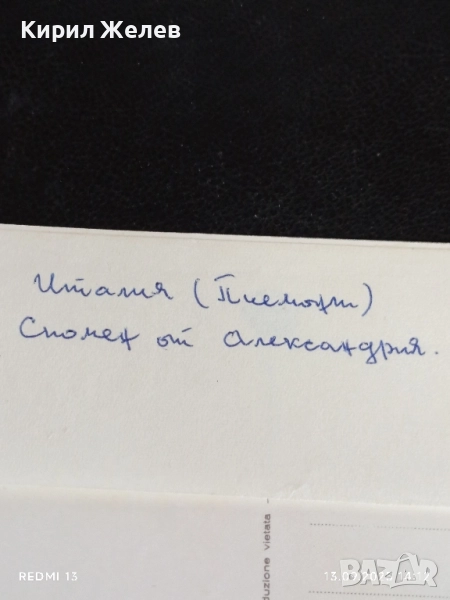 Кирил Желев
Италия (Пиемонт)
Спомен от Александрия.
duzione vietata -
REDMI 13
BAZAR